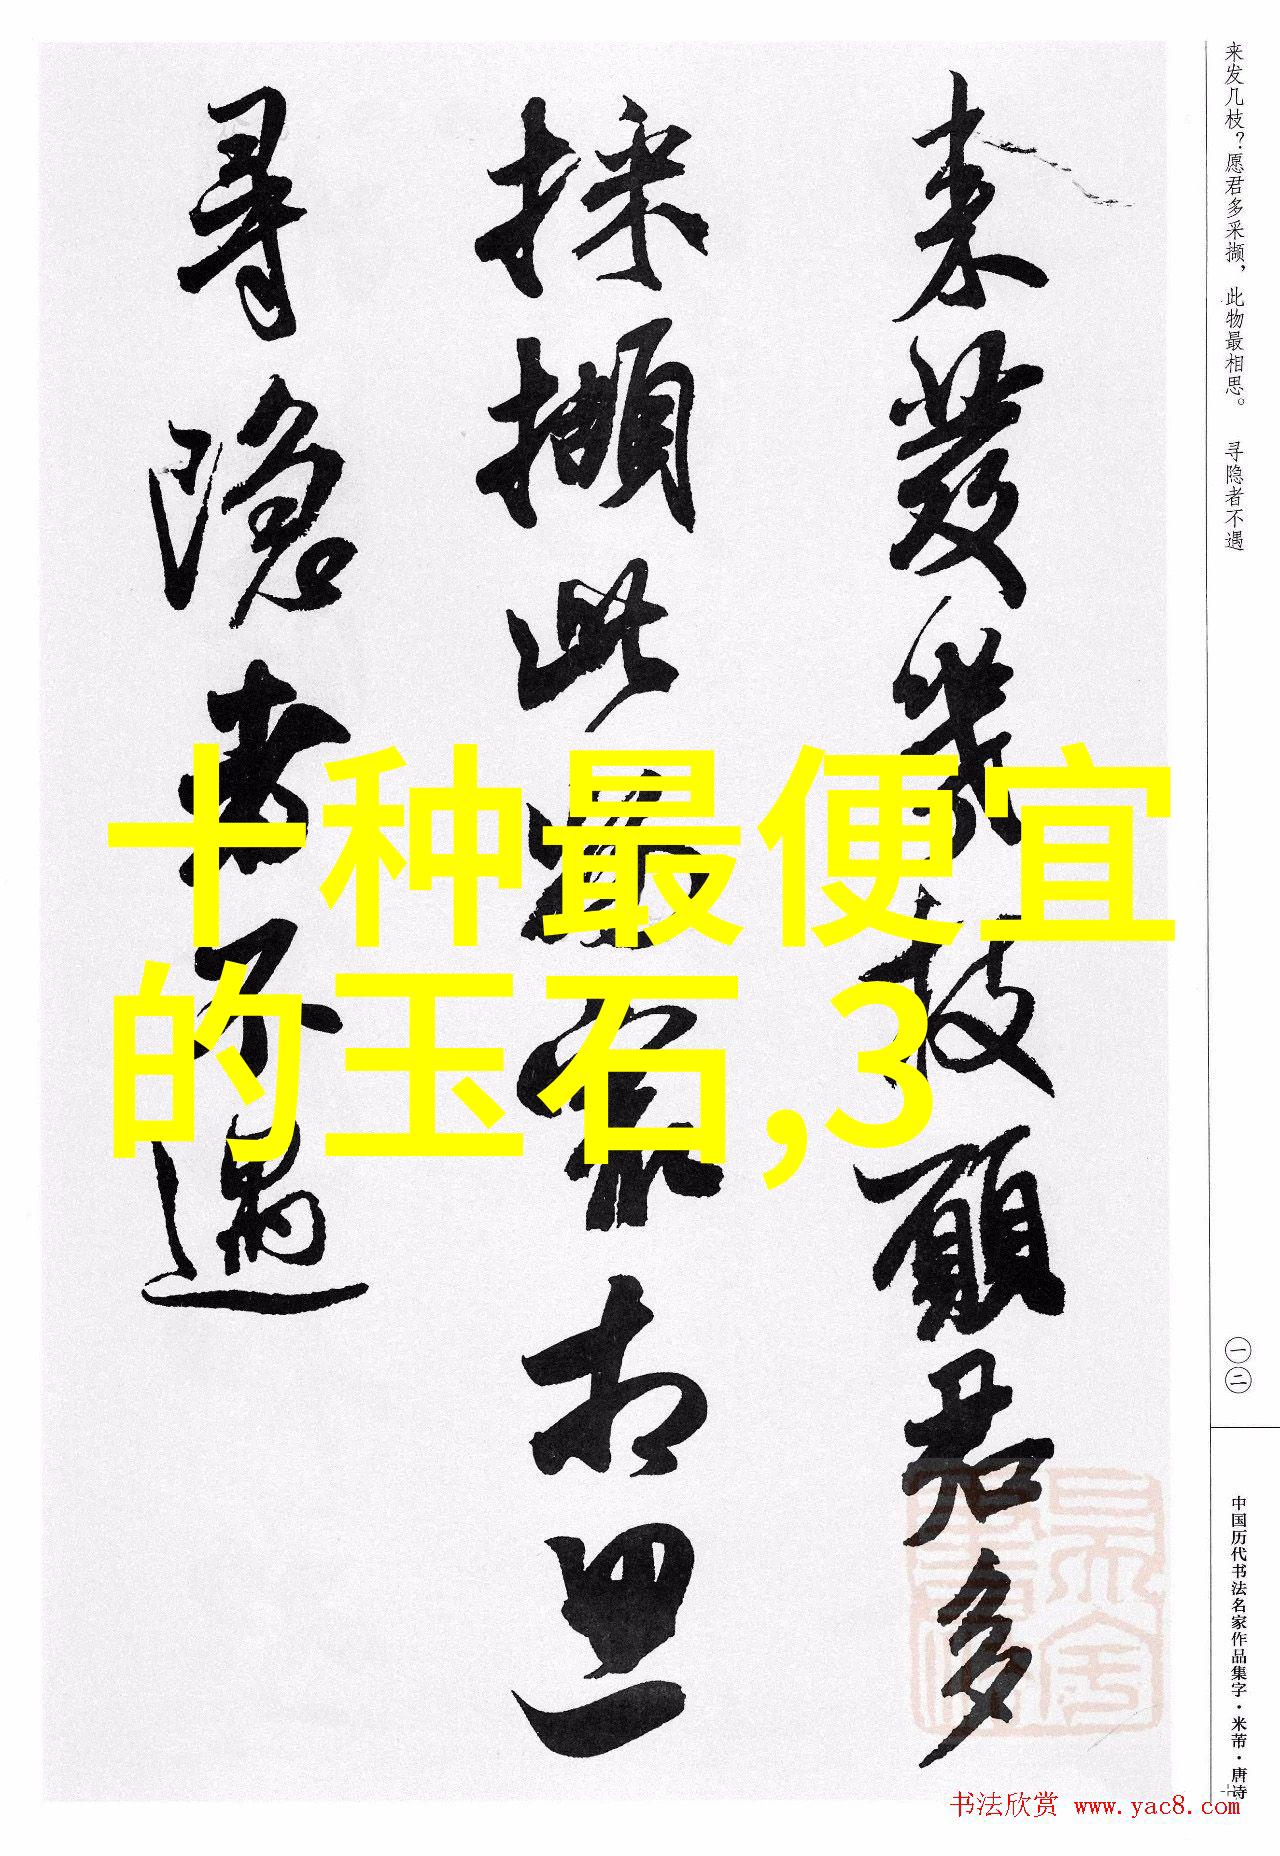 来发几枝？愿君多采撷，此物最相思。 寻隐者不遇
来發幾枝願君多
採擷此物最相思
尋隱者不遇
十种最便宜
的玉石,3
一二
中国历代书法名家作品集字·米芾·唐诗
书法欣赏 www.yac8.com